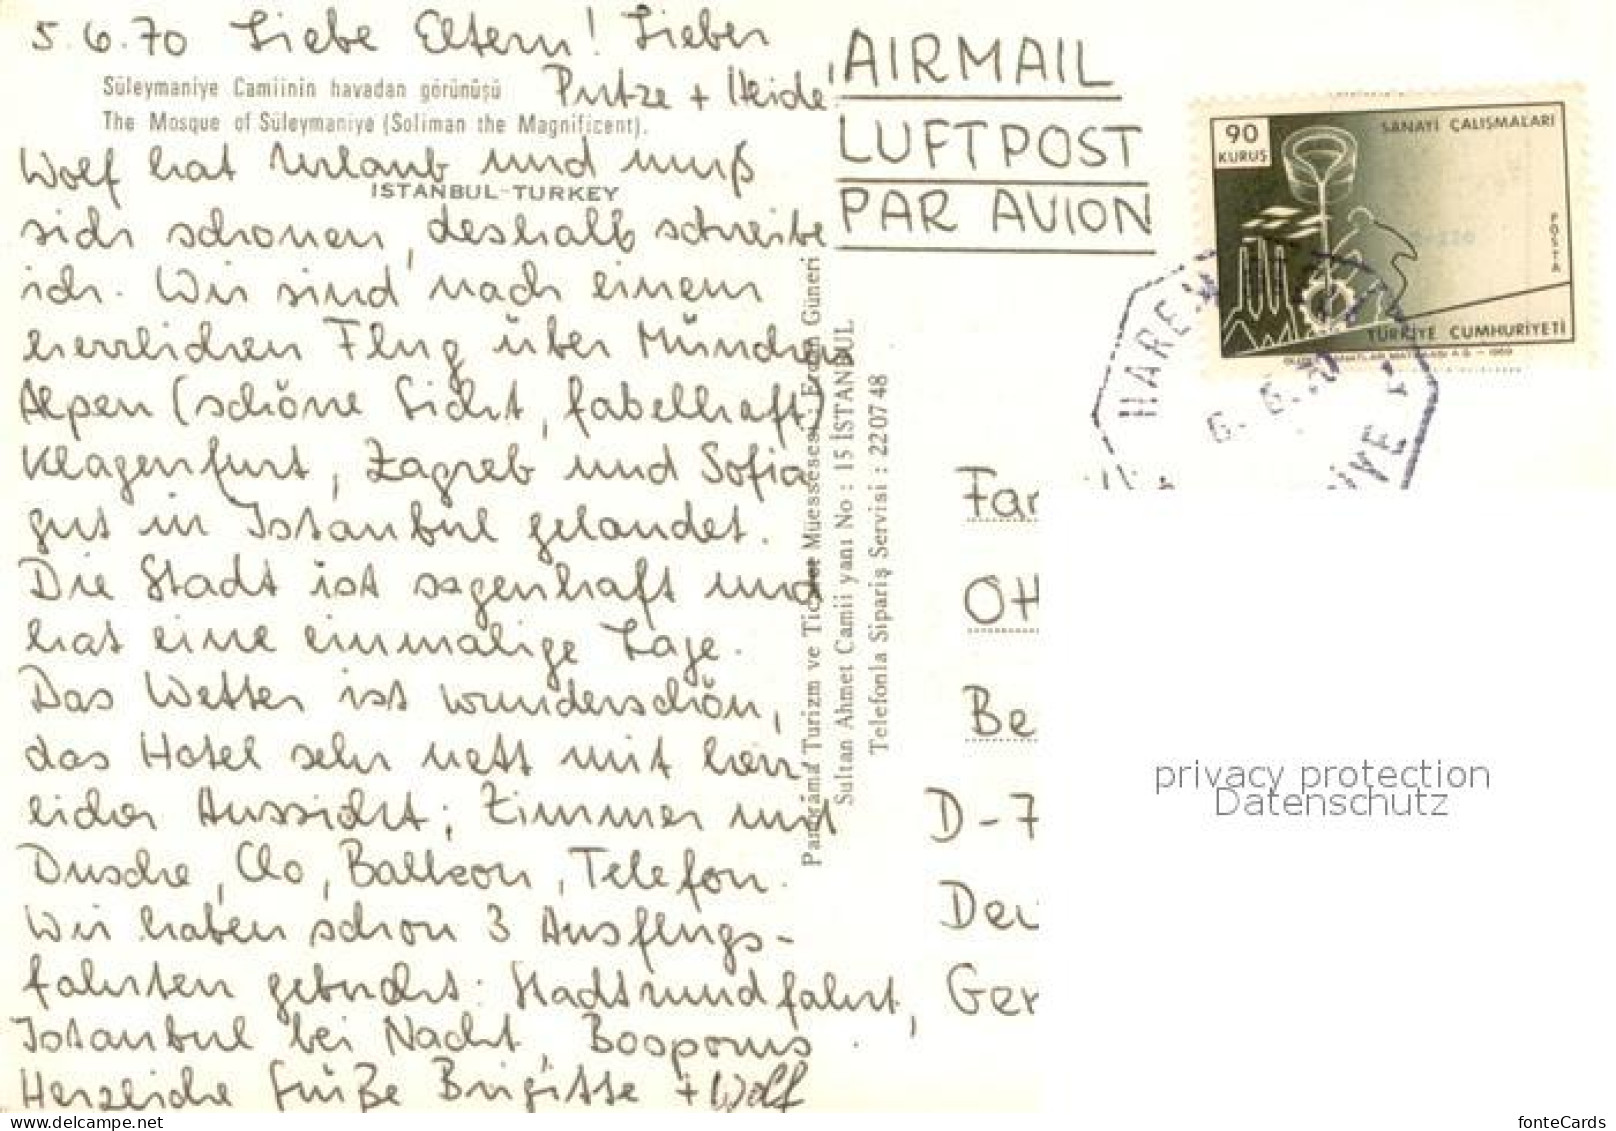 5.6.70 Liebe Eltern! Lieber
Putze + Heide!
Süleymaniye Camiinin havadan görünüşü
The Mosque of Süleymaniye (Soliman the Magnificent).
ISTANBUL-TURKEY
Wolf hat Urlaub und muß
sich schonen, deshalb schreibe
ich. Wir sind nach einem
herrlichen Flug über München
Alpen (schöne Sicht, fabelhaft)
Klagenfurt, Zagreb und Sofia
gut in Istanbul gelandet.
Die Stadt ist sagenhaft und
hat eine einmalige Lage.
Das Wetter ist wunderschön,
das Hotel sehr nett mit herr
licher Aussicht; Zimmer mit
Dusche, Clo, Balkon, Telefon.
Wir haben schon 3 Ausflugs-
fahrten gebucht: Stadtrundfahrt,
Istanbul bei Nacht, Bosporus.
Herzliche Grüße Brigitte + Wolf
Panorama Turizm ve Ticaret Müessesesi: Güneri
Sultan Ahmet Camii yanı No : 15 İSTANBUL
Telefonla Sipariş Servisi : 220748
AIRMAIL
LUFTPOST
PAR AVION
90
KURUŞ
SANAYİ ÇALIŞMALARI
POSTA
TÜRKİYE CUMHURİYETİ
6. 6. 70
Far
Ott
Be
D-7
Deu
Ger
privacy protection
Datenschutz
www.delcampe.net
fonteCards